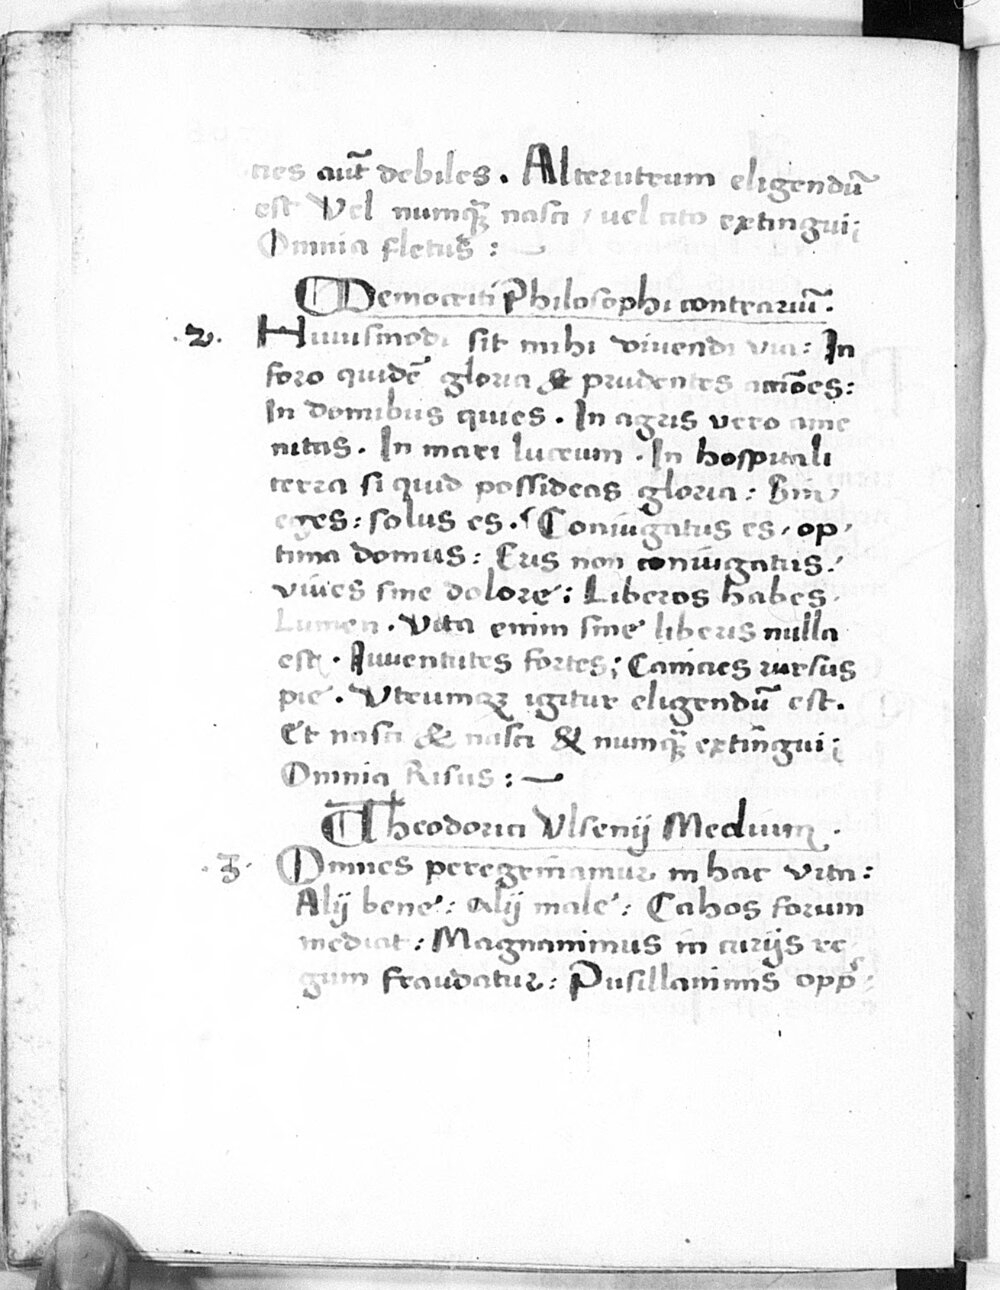 cies aut̄ debiles . Alterutrum eligendū
est Vel numqꝫ nasci / uel cito extingui;
Omnia fletus : ~
Democriti Philosophi contrariū :
.2. Huiusmodi sit mihi viuendi via : In
foro quidē gloria & prudentes actiōes :
In domibus quies . In agris vero ame
nitas . In mari lucrum . In hospitali
terra si quid possideas gloria : Sin
eges : solus es . Coniugatus es , op,
tima domus : Eris non coniugatus .
viues sine dolore : Liberos habes .
Lumen . Vita enim sine liberis nulla
est . Iuuentutes fortes ; Canicies rursus
pie . Vtrumqꝫ igitur eligendū est .
Et nasci & nasci & numqꝫ extingui ;
Omnia Risus : ~
Theodorici Vlsenij Medium .
.3. Omnes peregrinamur in hac vita :
Alij bene : alij male : Cahos forum
mediat : Magnanimus in curijs re
gum fraudatur : Pusillanimis opp̄ :